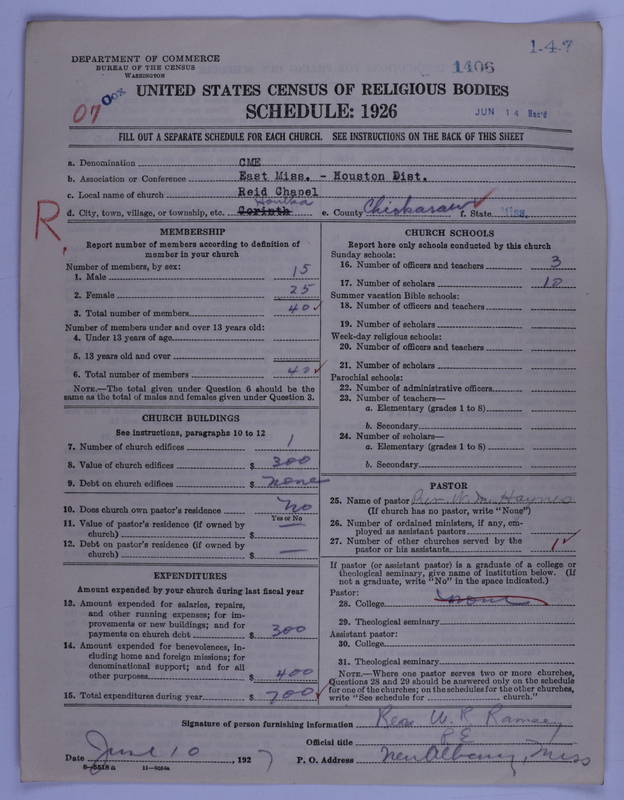 1-4-7
DEPARTMENT OF COMMERCE
BUREAU OF THE CENSUS
WASHINGTON
1406
07
UNITED STATES CENSUS OF RELIGIOUS BODIES
SCHEDULE: 1926
JUN 14 Rec'd
FILL OUT A SEPARATE SCHEDULE FOR EACH CHURCH. SEE INSTRUCTIONS ON THE BACK OF THIS SHEET
a. Denomination CME
b. Association or Conference East Miss. - Houston Dist.
c. Local name of church Reid Chapel
Houlka
d. City, town, village, or township, etc. Corinth e. County Chickasaw f. State Miss.
R.
MEMBERSHIP
Report number of members according to definition of
member in your church
Number of members, by sex:
1. Male 15
2. Female 25
3. Total number of members 40
Number of members under and over 13 years old:
4. Under 13 years of age
5. 13 years old and over
6. Total number of members 40
NOTE.—The total given under Question 6 should be the
same as the total of males and females given under Question 3.
CHURCH BUILDINGS
See instructions, paragraphs 10 to 12
7. Number of church edifices 1
8. Value of church edifices $ 300
9. Debt on church edifices $ none
10. Does church own pastor's residence No
Yes or No
11. Value of pastor's residence (if owned by
church) $ —
12. Debt on pastor's residence (if owned by
church) $ —
EXPENDITURES
Amount expended by your church during last fiscal year
13. Amount expended for salaries, repairs,
and other running expenses; for im-
provements or new buildings; and for
payments on church debt $ 300
14. Amount expended for benevolences, in-
cluding home and foreign missions; for
denominational support; and for all
other purposes $ 400
15. Total expenditures during year $ 700
CHURCH SCHOOLS
Report here only schools conducted by this church
Sunday schools:
16. Number of officers and teachers 3
17. Number of scholars 10
Summer vacation Bible schools:
18. Number of officers and teachers
19. Number of scholars
Week-day religious schools:
20. Number of officers and teachers
21. Number of scholars
Parochial schools:
22. Number of administrative officers
23. Number of teachers—
a. Elementary (grades 1 to 8)
b. Secondary
24. Number of scholars—
a. Elementary (grades 1 to 8)
b. Secondary
PASTOR
25. Name of pastor Rev. W. M. Haynes
(If church has no pastor, write "None")
26. Number of ordained ministers, if any, em-
ployed as assistant pastors
27. Number of other churches served by the
pastor or his assistants 1
If pastor (or assistant pastor) is a graduate of a college or
theological seminary, give name of institution below. (If
not a graduate, write "No" in the space indicated.)
Pastor:
28. College none
29. Theological seminary
Assistant pastor:
30. College
31. Theological seminary
NOTE.—Where one pastor serves two or more churches,
Questions 28 and 29 should be answered only on the schedule
for one of the churches; on the schedules for the other churches,
write "See schedule for church."
Signature of person furnishing information W. R. Ramsey
Official title P E
Date June 10, 1927 P. O. Address New Albany, Miss
8-5518a 11-9054a